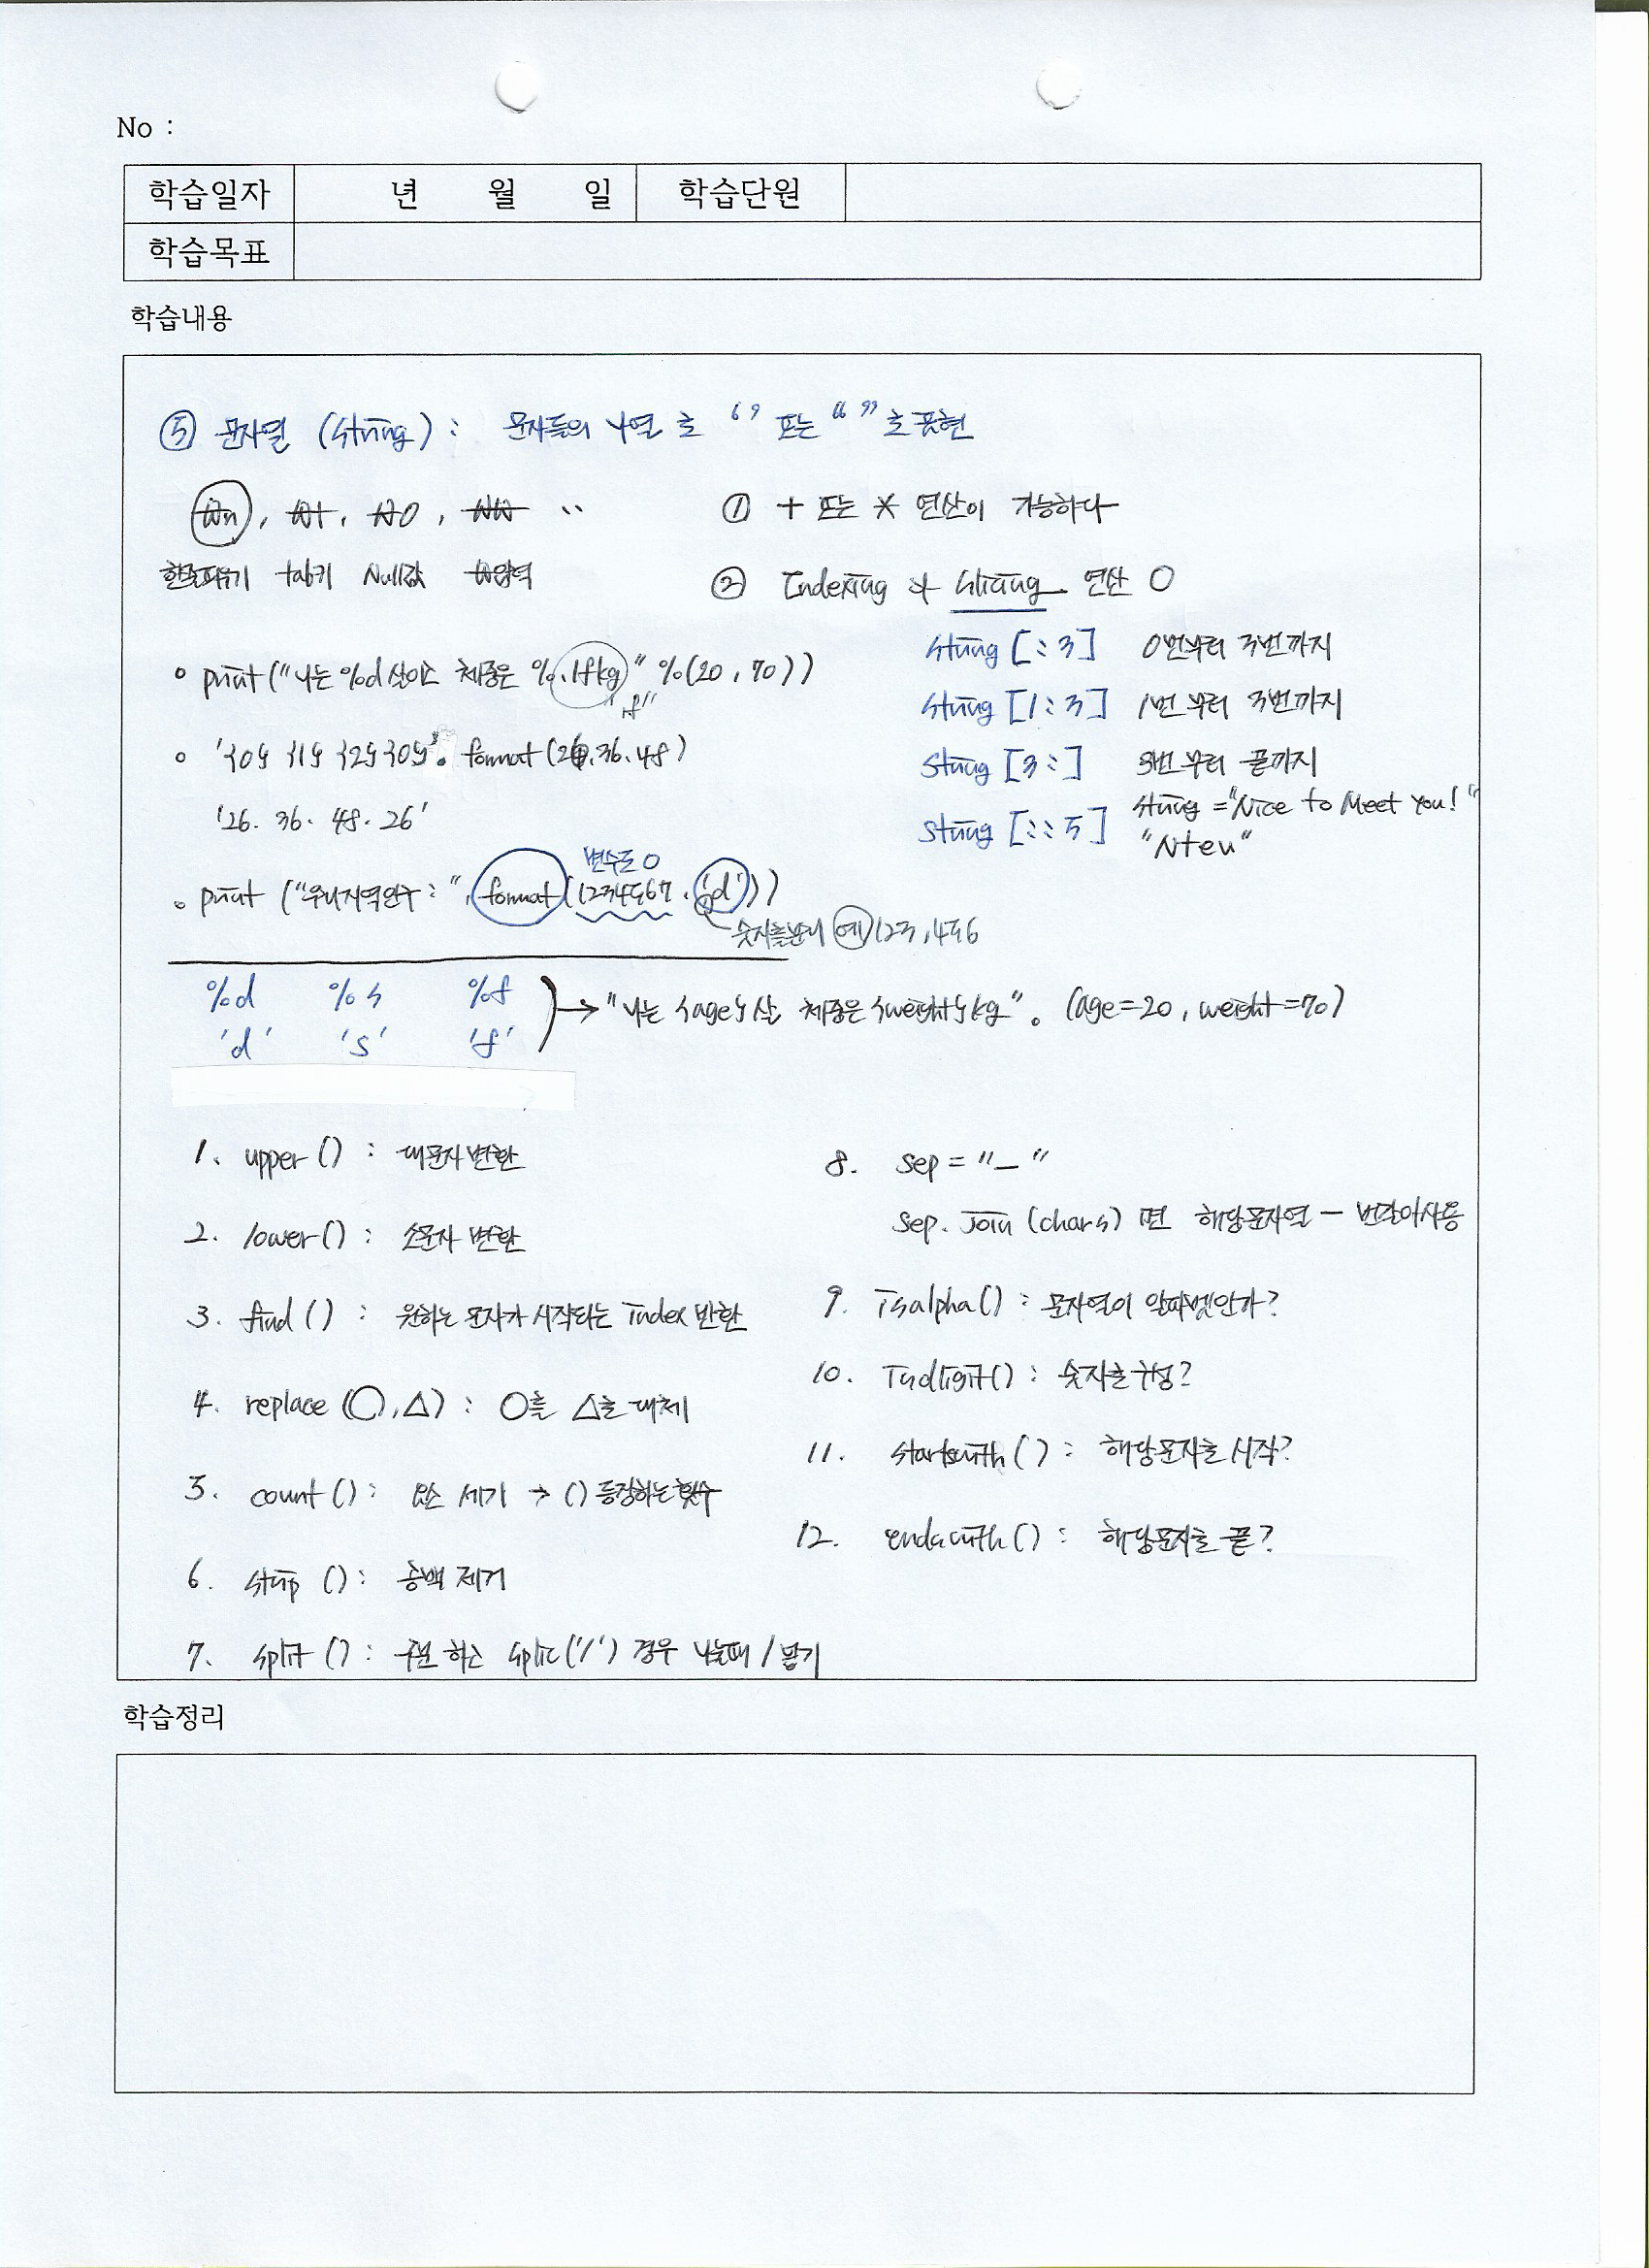 No :
학습일자 년 월 일 학습단원
학습목표
학습내용
⑤ 문자열 (String) : 문자들의 나열로 ‘ ’ 또는 “ ” 로 표현
₩n, ₩t, ₩0, ₩₩ ..
한줄띄우기 tab키 Null값 ₩입력
① + 또는 * 연산이 가능하다
② Indexing 과 Slicing 연산 O
String [:3] 0번부터 3번까지
String [1:3] 1번부터 3번까지
String [3:] 3번부터 끝까지
String [::5] String = "Nice to Meet You!"
"Nteu"
∘ print ("나는 %d살이고 체중은 %.1fkg" %(20, 70))
"f"
∘ '{0} {1} {2} {0}'. format (26, 36, 48)
'26. 36. 48. 26'
변수도 O
∘ print ("우리지역인구 : ", format (1234567, ',d'))
숫자를분리 예) 123,456
%d %s %f
'd' 's' 'f'
→ "나는 {age}살 체중은 {weight}kg". (age=20, weight=70)
1. upper () : 대문자 변환
2. lower () : 소문자 변환
3. find () : 원하는 문자가 시작되는 Index 반환
4. replace (○,△) : ○를 △로 대체
5. count () : 요소 세기 → () 등장하는 횟수
6. strip () : 공백 제거
7. split () : 구분 하고 split('/') 경우 나눌때 /
8. sep = "_"
sep. join (chars) 면 해당문자열 — 번갈아사용
9. isalpha () : 문자열이 알파벳인가?
10. isdigit () : 숫자로구성?
11. startswith () : 해당문자로 시작?
12. endswith () : 해당문자로 끝?
학습정리